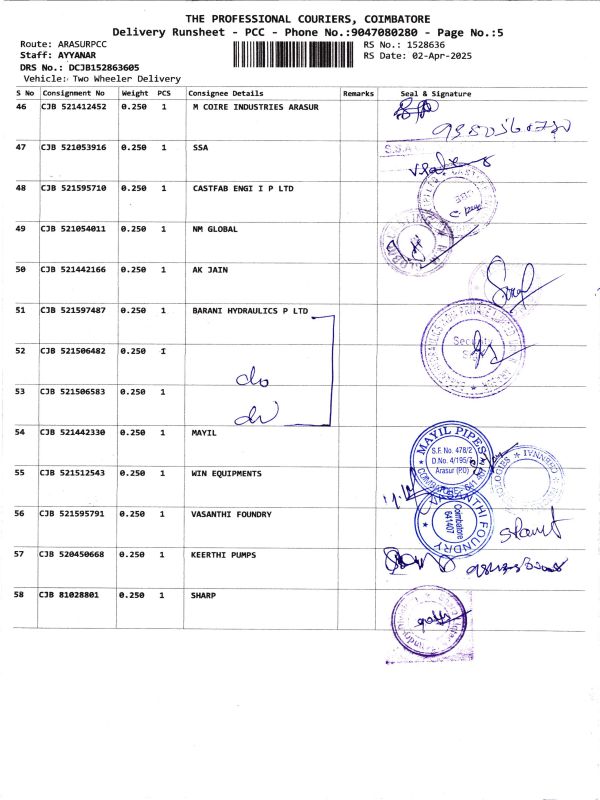 THE PROFESSIONAL COURIERS, COIMBATORE
Delivery Runsheet - PCC - Phone No.:9047080280 - Page No.:5
Route: ARASURPCC
RS No.: 1528636
Staff: AYYANAR
RS Date: 02-Apr-2025
DRS No.: DCJB152863605
Vehicle: Two Wheeler Delivery
S No Consignment No Weight PCS Consignee Details Remarks Seal & Signature
46 CJB 521412452 0.250 1 M COIRE INDUSTRIES ARASUR
47 CJB 521053916 0.250 1 SSA
S.S.A
48 CJB 521595710 0.250 1 CASTFAB ENGI I P LTD
49 CJB 521054011 0.250 1 NM GLOBAL
50 CJB 521442166 0.250 1 AK JAIN
51 CJB 521597487 0.250 1 BARANI HYDRAULICS P LTD
Security
52 CJB 521506482 0.250 1
do
53 CJB 521506583 0.250 1
do
54 CJB 521442330 0.250 1 MAYIL
MAYIL PIPES
S.F. No. 478/2
D.No. 4/195/2
Arasur (P.O)
55 CJB 521512543 0.250 1 WIN EQUIPMENTS
56 CJB 521595791 0.250 1 VASANTHI FOUNDRY
Coimbatore
641407
57 CJB 520450668 0.250 1 KEERTHI PUMPS
58 CJB 81028801 0.250 1 SHARP